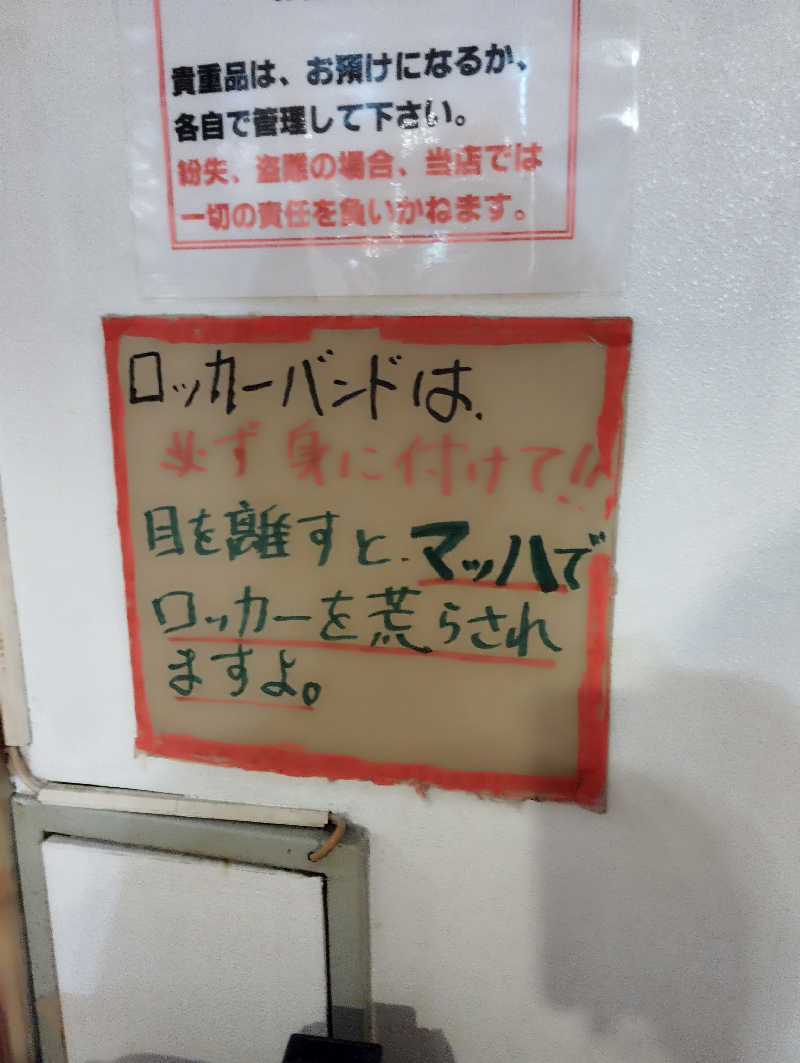 貴重品は、お預けになるか、
各自で管理して下さい。
紛失、盗難の場合、当店では
一切の責任を負いかねます。
ロッカーバンドは、
必ず身に付けて!!
目を離すと、マッハで
ロッカーを荒らされ
ますよ。